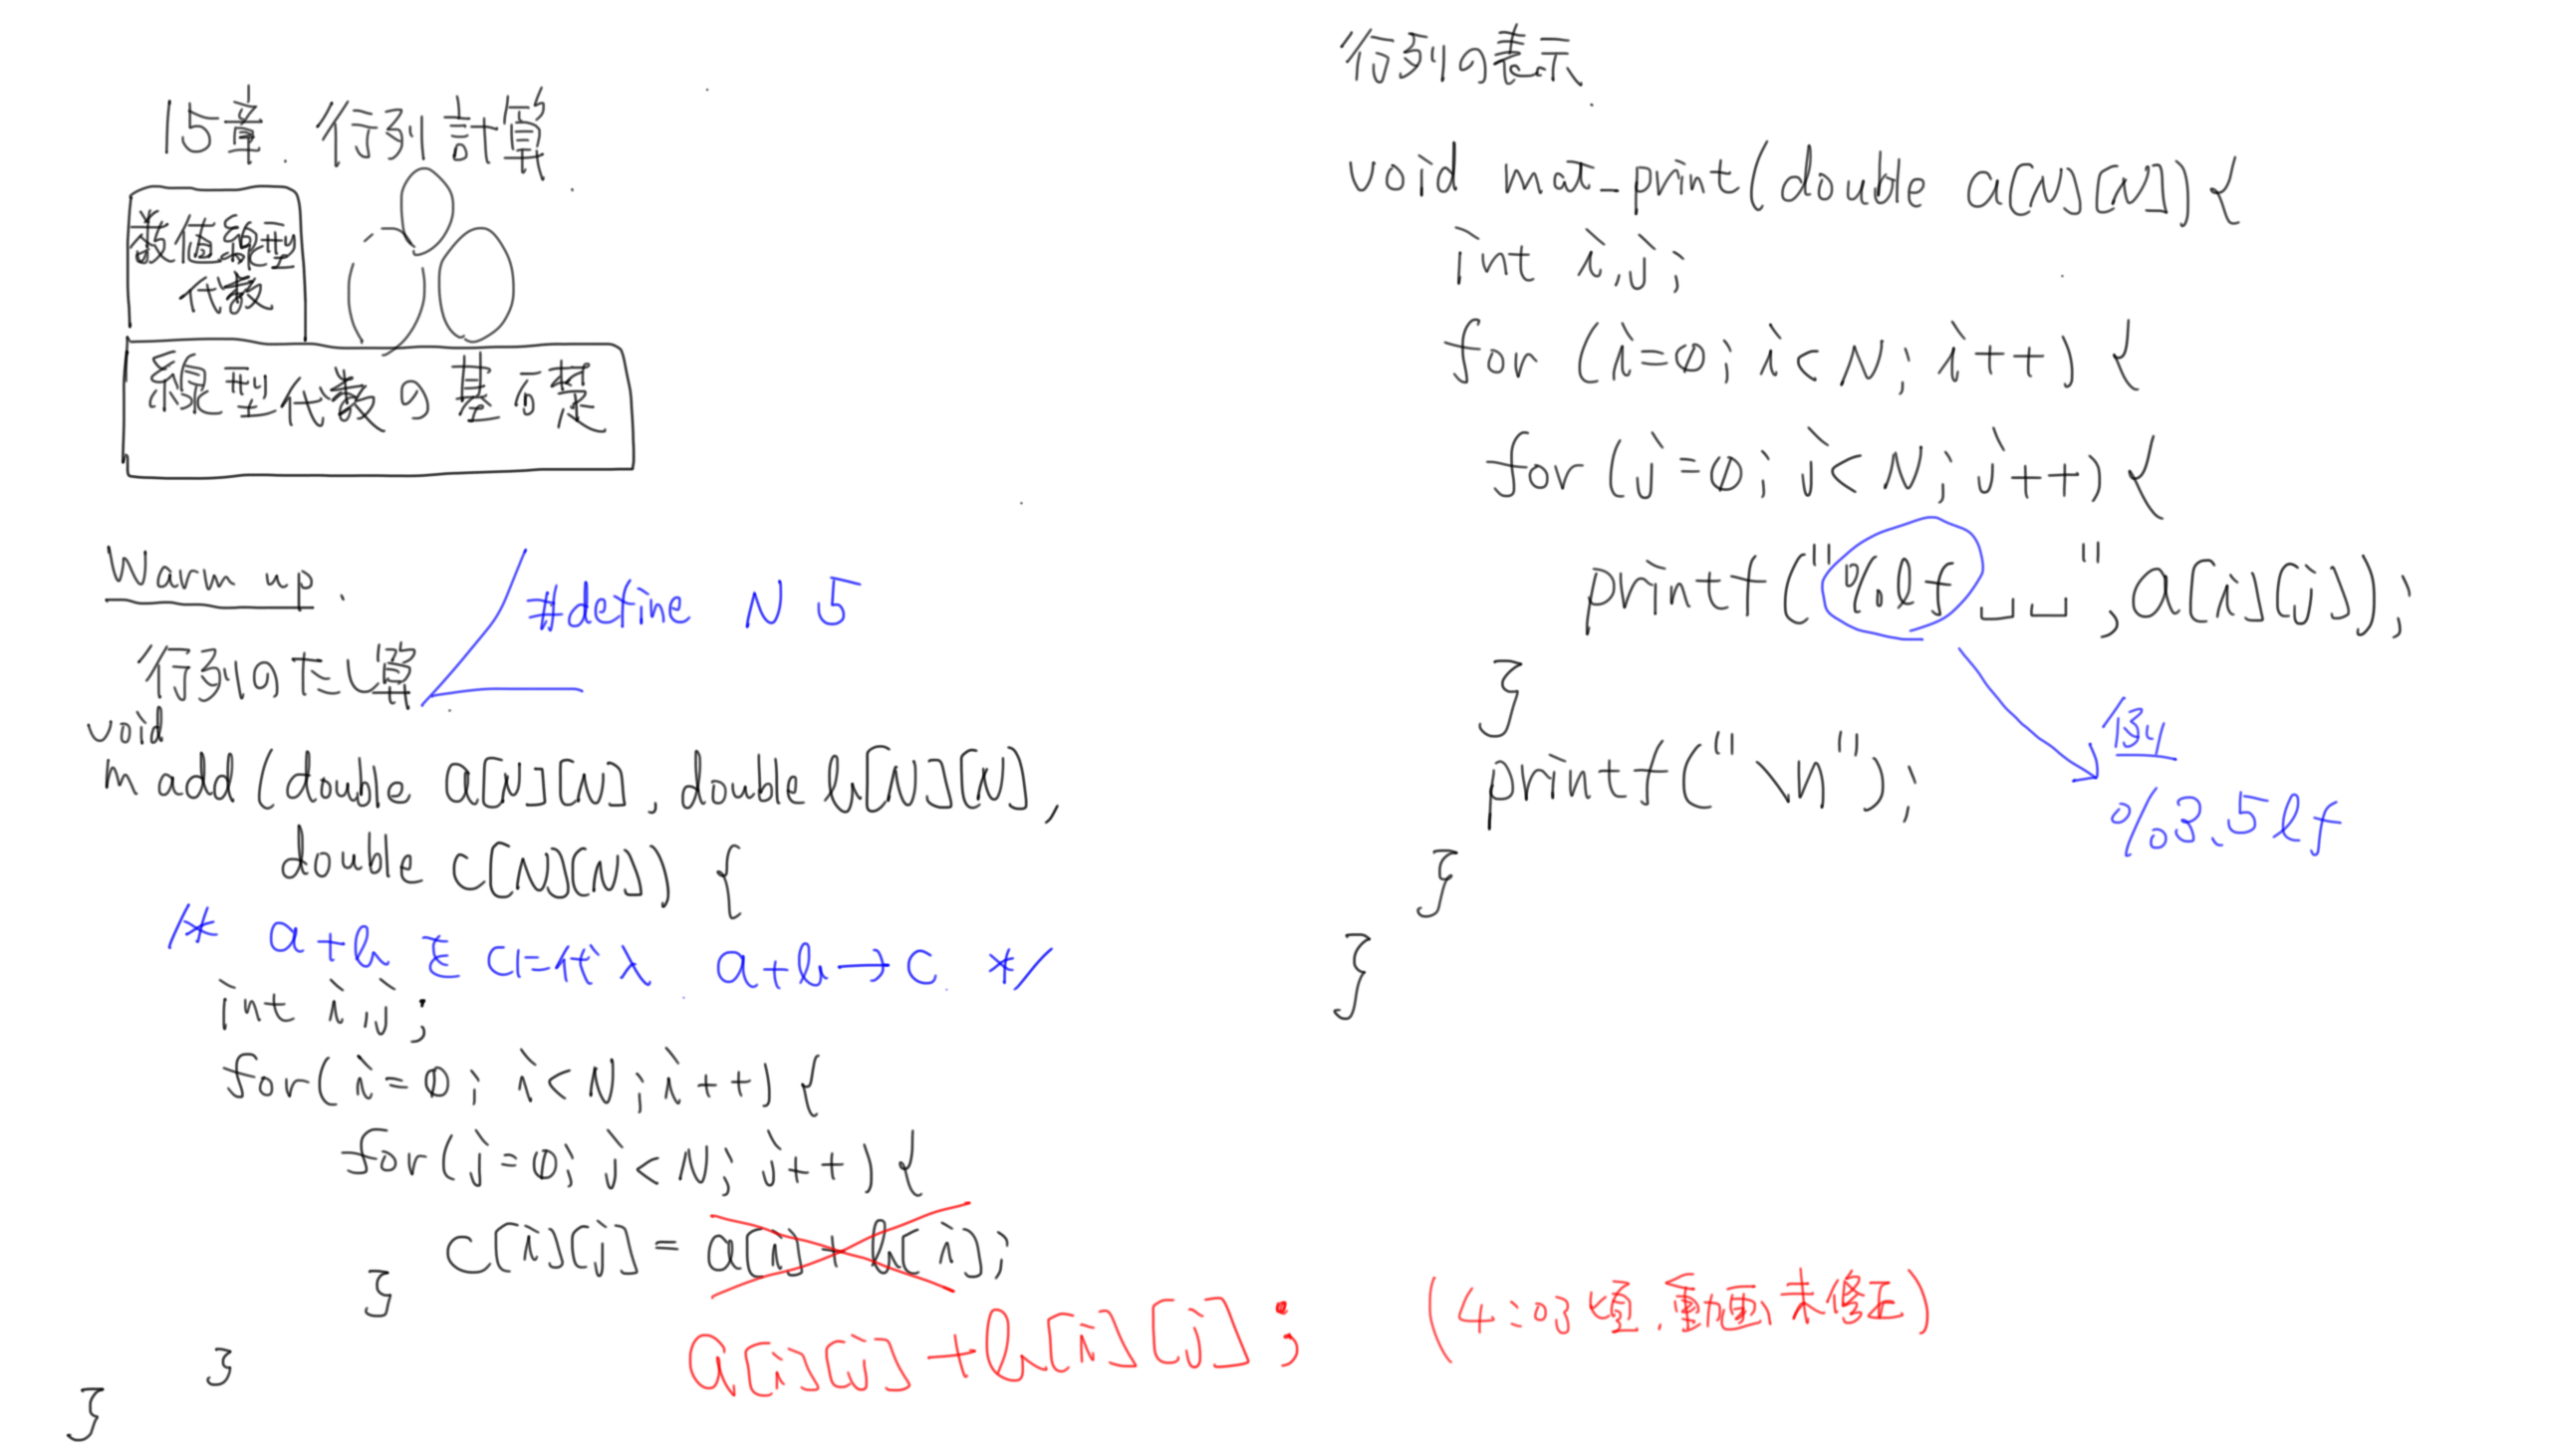 15章. 行列計算.
数値線型
代数
線型代数の基礎
Warm up.
#define N 5
行列のたし算
void
madd(double a[N][N], double b[N][N],
double c[N][N]) {
/* a+bをcに代入. a+b→c. */
int i,j;
for(i=0; i<N; i++) {
for(j=0; j<N; j++) {
c[i][j] = a[i]+b[i];
}
a[i][j]+b[i][j];
(4:03頃.動画、未修正)
}
}
行列の表示.
void mat_print(double a[N][N]){
int i,j;
for (i=0; i<N; i++) {
for (j=0; j<N; j++) {
printf("%lf␣␣",a[i][j]);
}
例
printf("\n");
%3.5lf
}
}